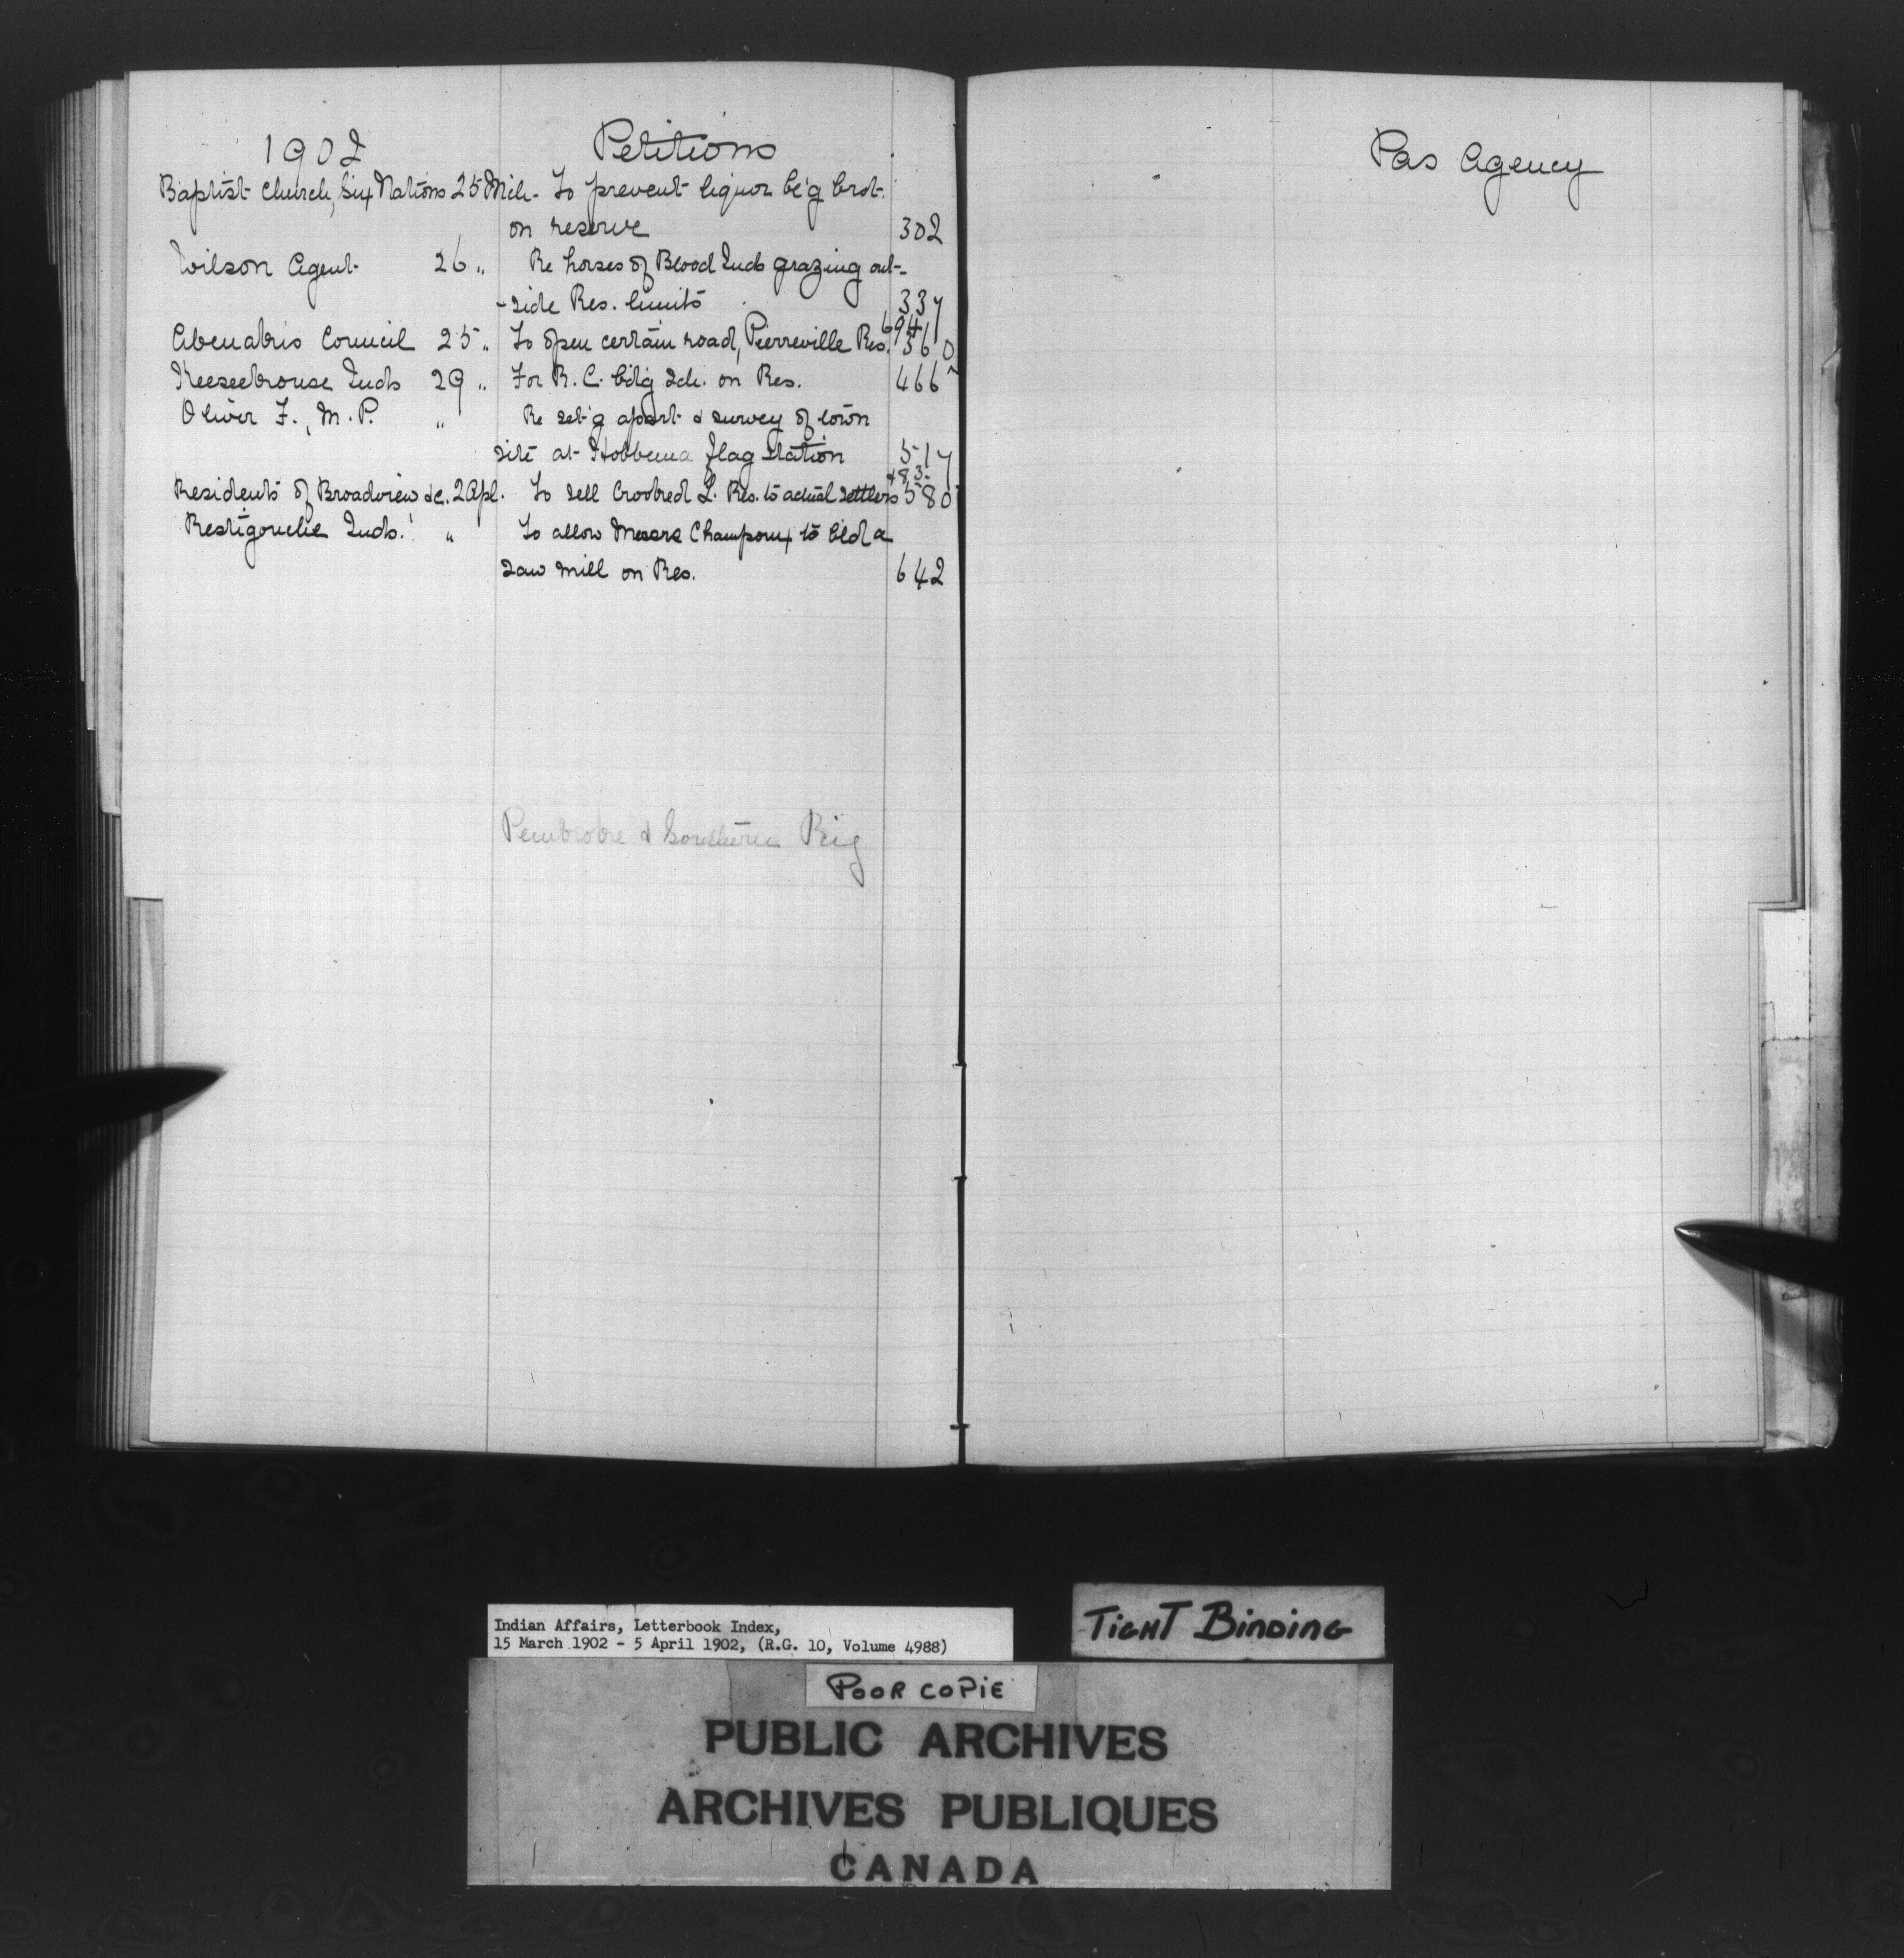 1902 Petitions
Baptist Church, Six Nations 25 Mch - To prevent liquor be'g brot.
on reserve 302
Wilson Agent 26 " Re horses of Blood Inds grazing out-
-side Res. limits 337
694
Abenakis Council 25 " To open certain road, Pierreville Res. 360
Keeseekouse Inds 29 " For R. C. bdg Sch. on Res. 466
Oliver F., M. P. " Re set'g apart & survey of town
site at Hobbema flag station 517
483
Residents of Broadview &c. 2 Apl. To sell Crooked L. Res. to actual settlers 580
Restigouche Inds. " To allow Messrs Champoux to bld a
saw mill on Res. 642
Pembroke & Southern Ry
Pas Agency
Indian Affairs, Letterbook Index,
15 March 1902 - 5 April 1902, (R.G. 10, Volume 4988)
TIGHT BINDING
POOR COPIE
PUBLIC ARCHIVES
ARCHIVES PUBLIQUES
CANADA